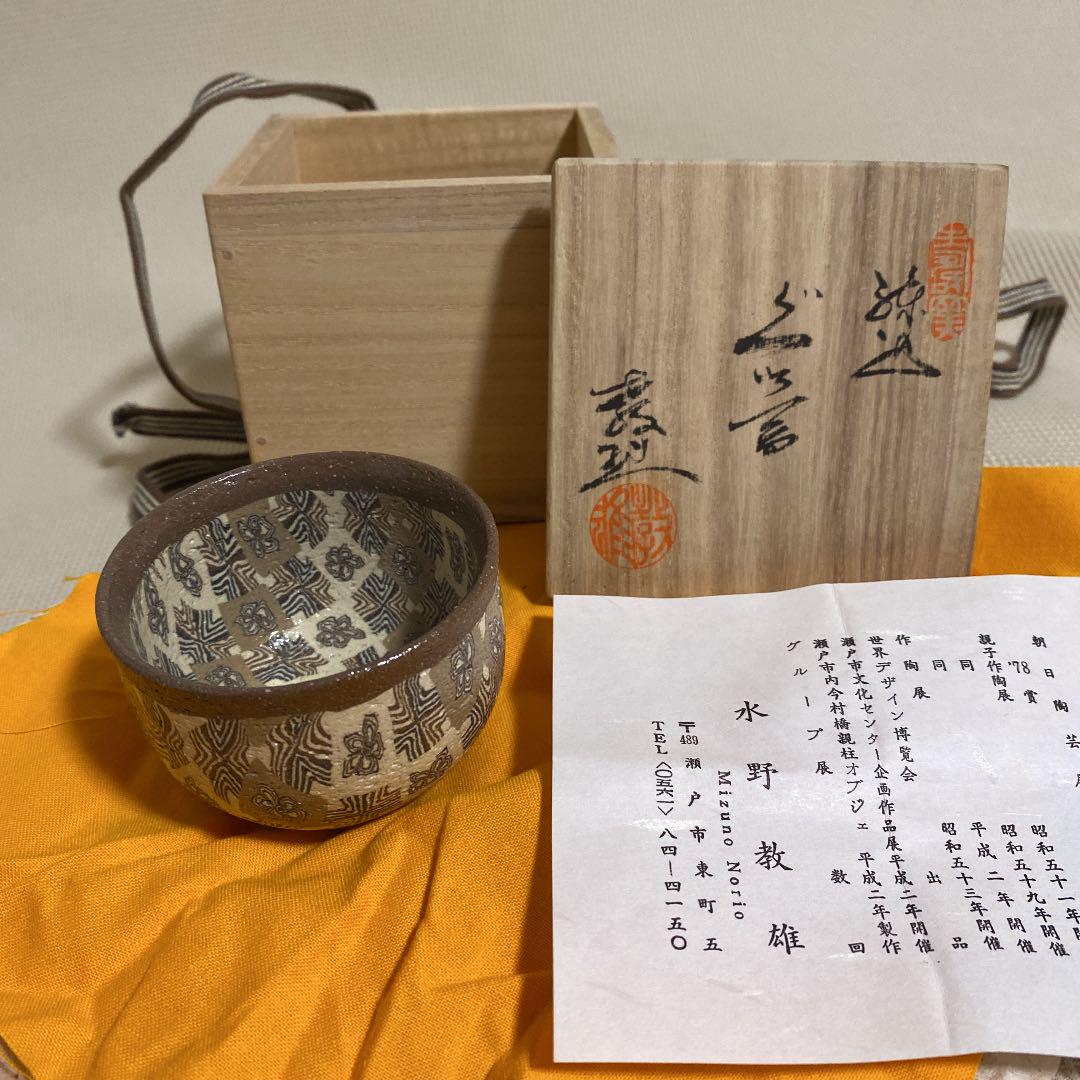 練込
ぐい呑
朝日陶芸展 昭和五十一年
'78賞 昭和五十九年開催
親子作陶展 平成二年開催
同 昭和五十三年開催
作陶展 出品
世界デザイン博覧会
瀬戸市文化センター企画作品展 平成二年開催
瀬戸市内今村橋親柱オブジェ 平成二年製作
グループ展 数回
水野教雄
Mizuno Norio
〒489 瀬戸市東町五
TEL〈〇五六一〉八四―四一五〇